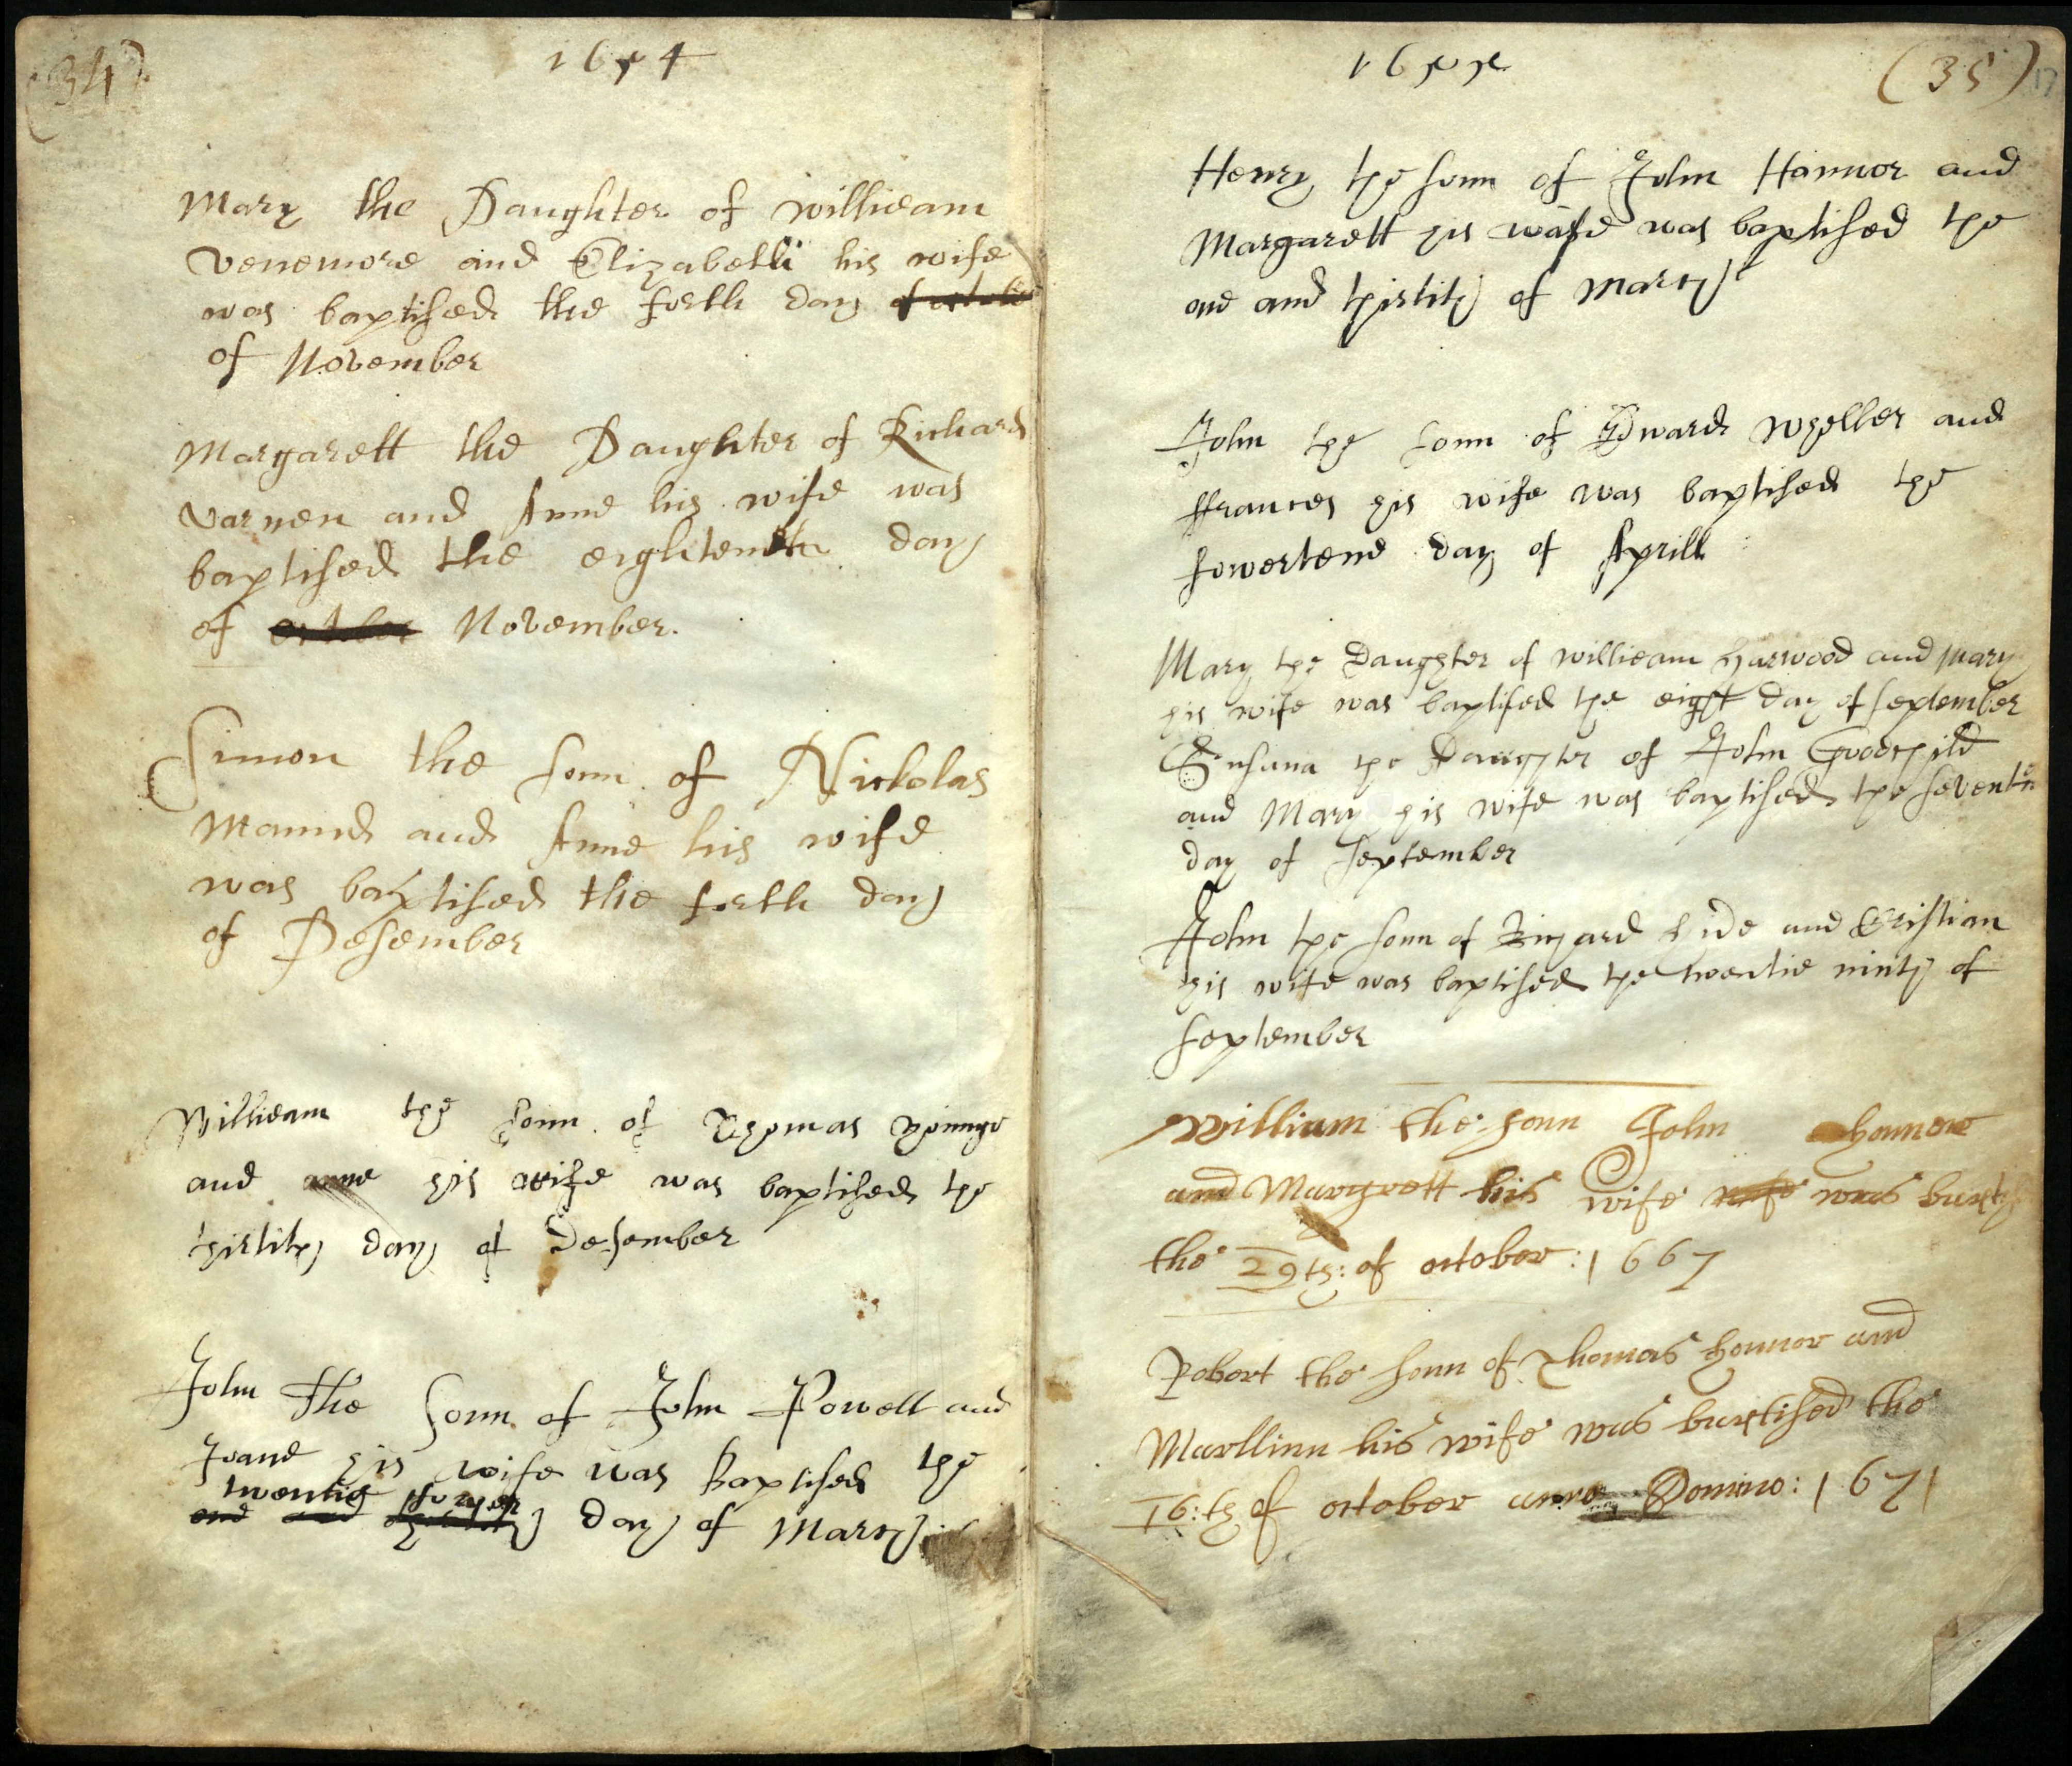 (34)
1654
Mary the Daughter of willieam
venemore and Elizabeth his wife
was baptised the forth day of octobe
of November
Margarett the Daughter of Richard
varnen and Anne his wife was
baptised the eightenth day
of october November.
Simon the sonn of Nickolas
Maund and Anne his wife
was baptised the forth day
of Desember
Willieam the sonn of Thomas younge
and anne his wife was baptised the
thirtith day of Desember
John the sonn of John Powell and
Joane his wife was Baptised the
twentie
one and day of March
1655
(35)
17
Henry the sonn of John Hannor and
Margarett his wife was baptised the
one and thirtith of March
John the sonn of Edward wheller and
ffrances his wife was baptised the
fowertene day of Aprill
Mary the Daughter of willieam harwood and mary
his wife was baptised the eight day of september
Susana the Daughter of John Goodchild
and Mary his wife was baptised the seventh
day of september
John the sonn of Richard hide and Cristian
his wife was baptised the twentie ninth of
september
William the sonn John honnor
and Margrett his wife wife was bapt
the 29th: of october: 1667
Robert the sonn of Thomas honnor and
his wife was baptised the
16:th of october anno Domino: 1671